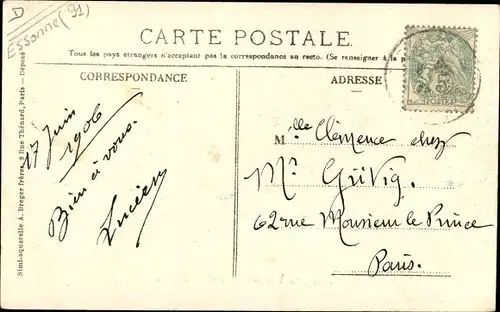 D
Essonne (91)
CARTE POSTALE
Tous les pays étrangers n'acceptent pas la correspondance au recto. (Se renseigner à la p
CORRESPONDANCE
ADRESSE
17 Juin
1906
Bien à vous.
Lucien
Mlle Clémence chez
Mr Grivig.
62 rue Monsieur le Prince
Paris.
POSTES
Simi-aquarelle A. Breger frères, 9 Rue Thénard, Paris - Déposé